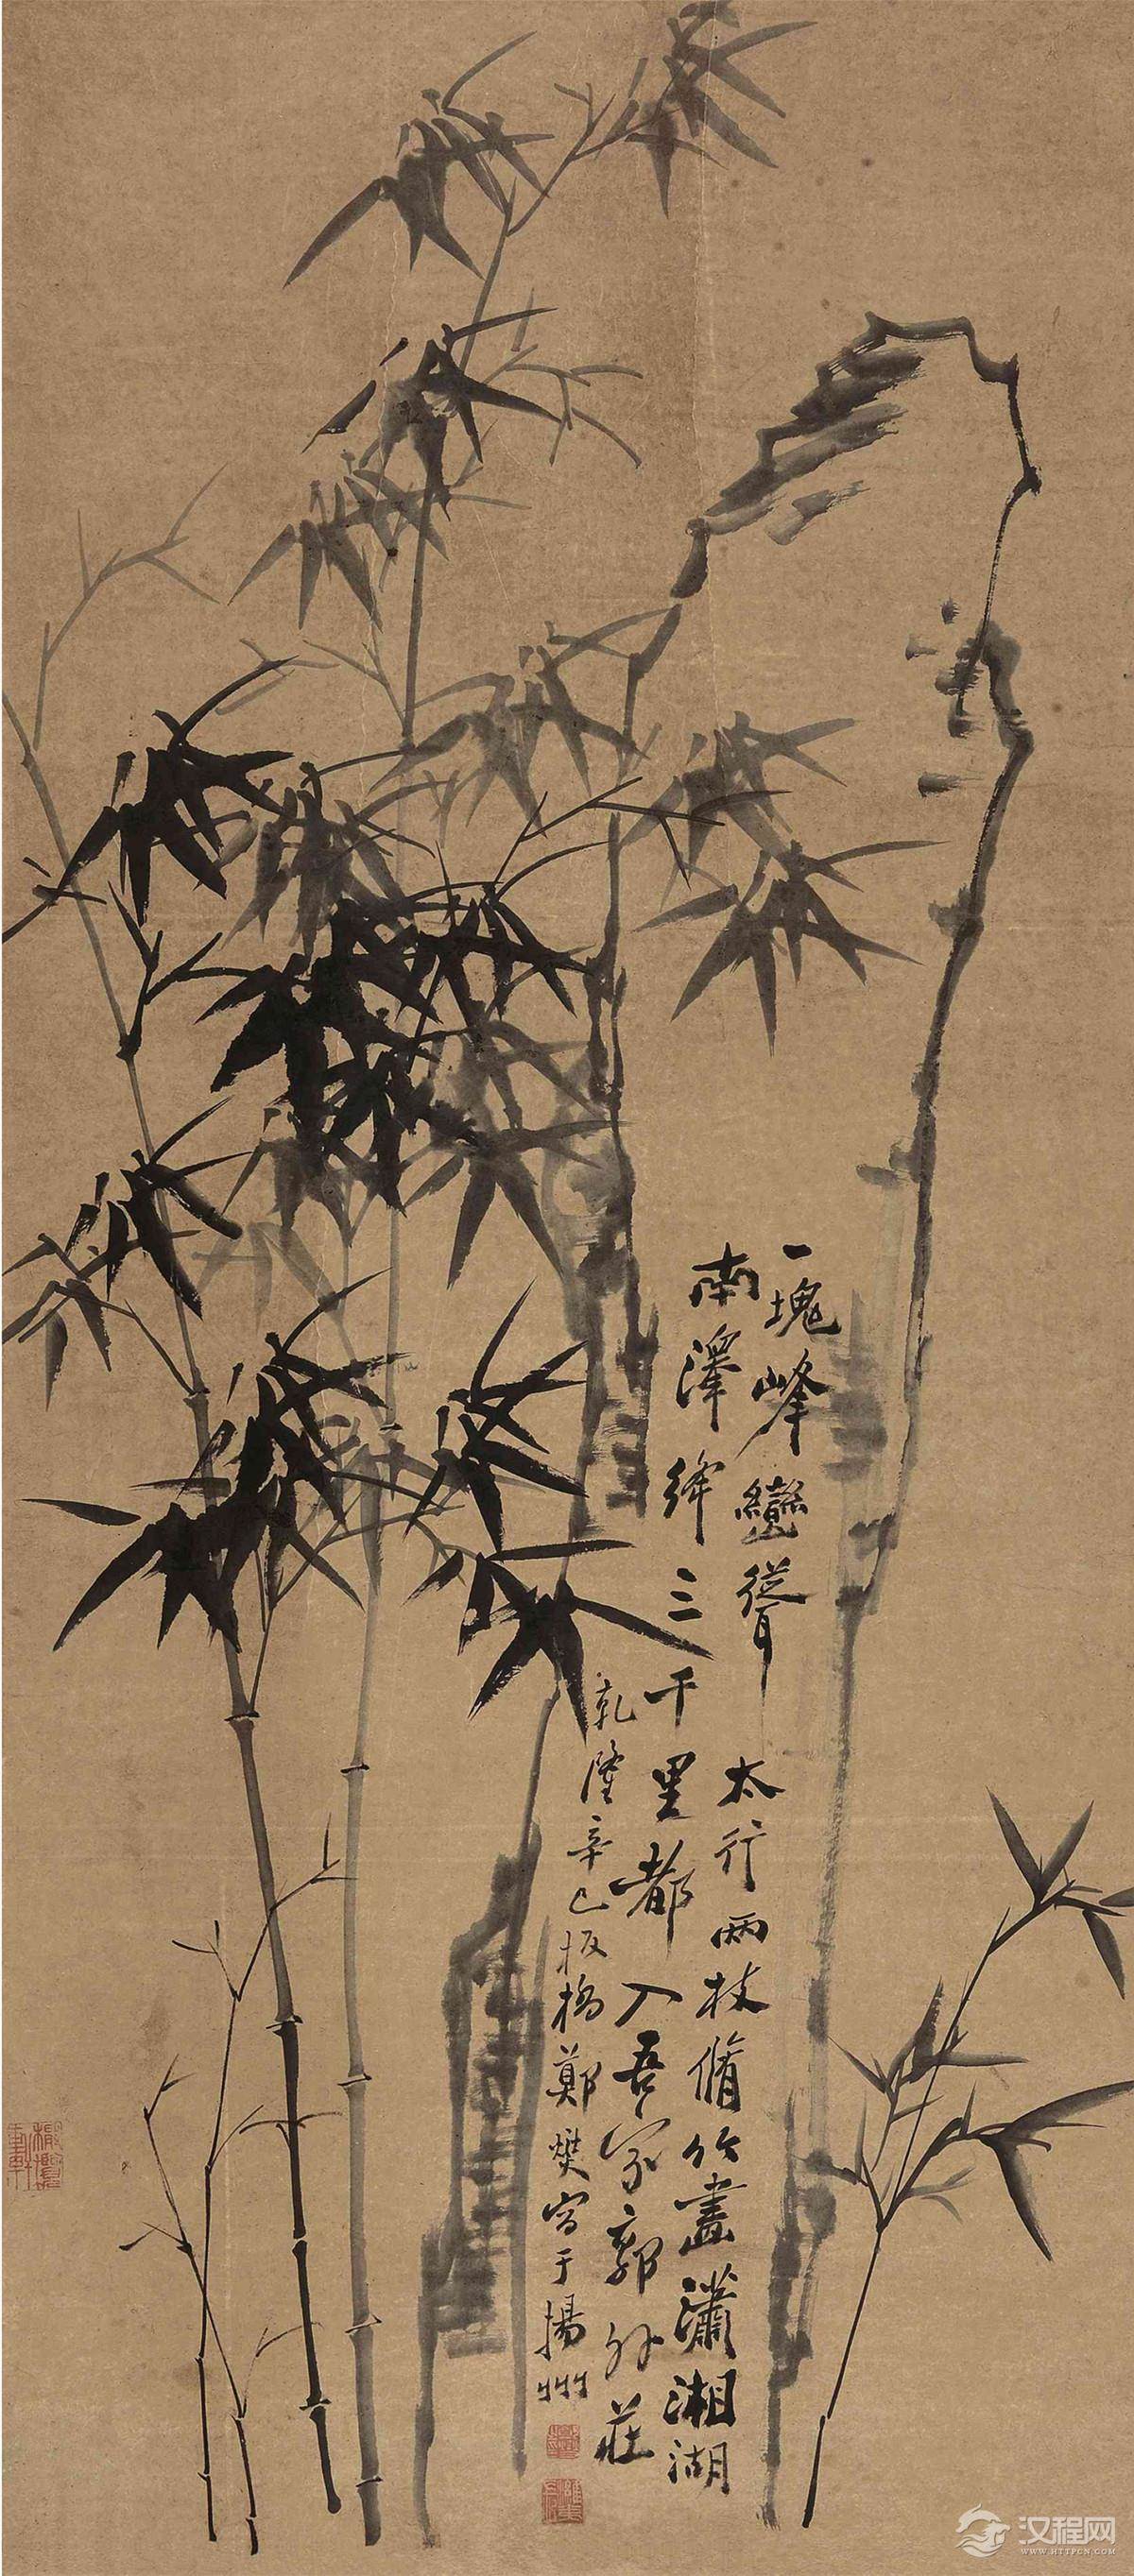 一塊峰巒聳太行兩枝脩竹畫瀟湘湖
南澤絳三千里都入吾家郭外莊
乾隆辛巳板橋鄭燮寫于揚州
汉程网
WWW.HTTPCN.COM